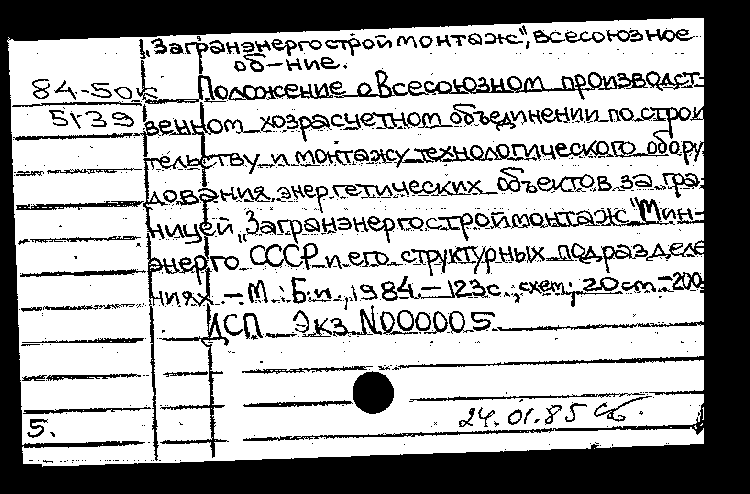 „Загранэнергостроймонтаж", Всесоюзное
об-ние.
84-50к Положение о Всесоюзном производст-
5139 венном хозрасчетном объединении по строи
тельству и монтажу технологического обору
дования энергетических объектов за гра-
ницей „Загранэнергостроймонтаж" Мин-
энерго СССР и его структурных подразделе
ниях. – М.: Б.и., 1984. – 123с., схем; 20см. – 200.
ДСП Экз N000005.
24.01.85
5.